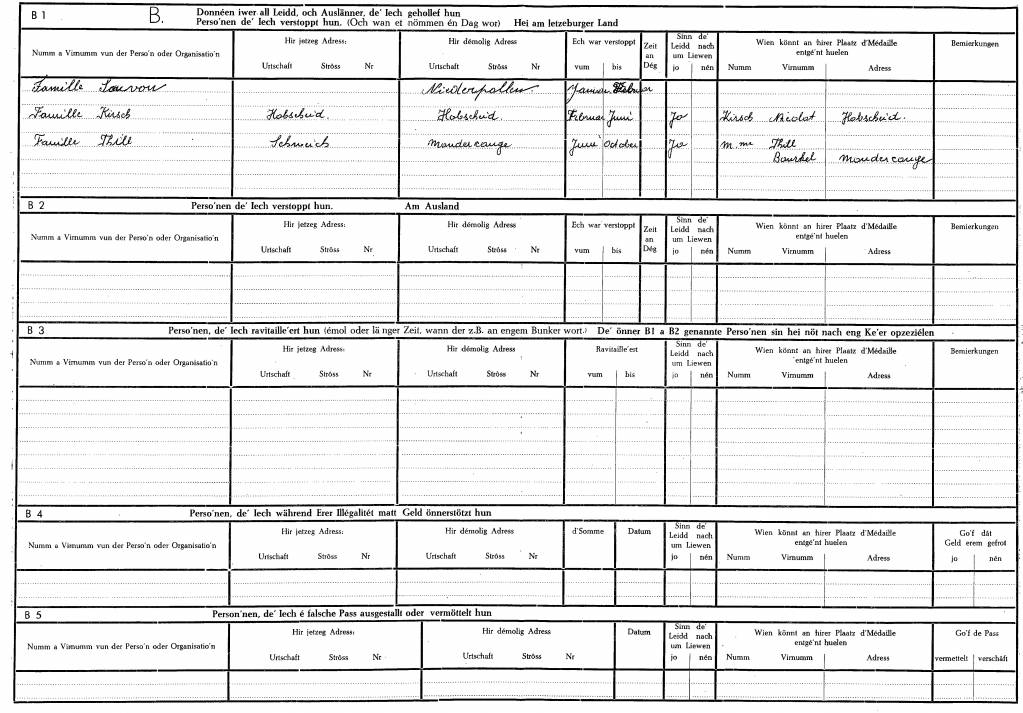 B 1 B. Donnéen iwer all Leidd, och Auslänner, de' Iech gehollef hun
Perso'nen de' Iech verstoppt hun. (Och wan et nömmen én Dag wor) Hei am letzeburger Land
Numm a Virnumm vun der Perso'n oder Organisatio'n
Hir jetzeg Adress:
Urtschaft Ströss Nr
Hir démolig Adress
Urtschaft Ströss Nr
Ech war verstoppt
vum bis
Zeit
an
Dég
Sinn de'
Leidd nach
um Liewen
jo nén
Wien könnt an hirer Plaatz d'Médaille
entgé'nt huelen
Numm Virnumm Adress
Bemierkungen
Famille Niederpallen Januar Februar
Famille Kirsch Hobscheid. Hobscheid. Februar Juni Jo Kirsch Nicolas Hobscheid.
Famille Thill Schweich Mondercange Juni October Jo M.me Thill
Bourkel Mondercange
B 2 Perso'nen de' Iech verstoppt hun. Am Ausland
Numm a Virnumm vun der Perso'n oder Organisatio'n
Hir jetzeg Adress:
Urtschaft Ströss Nr
Hir démolig Adress
Urtschaft Ströss Nr
Ech war verstoppt
vum bis
Zeit
an
Dég
Sinn de'
Leidd nach
um Liewen
jo nén
Wien könnt an hirer Plaatz d'Médaille
entgé'nt huelen
Numm Virnumm Adress
Bemierkungen
B 3 Perso'nen, de' Iech ravitaille'ert hun (émol oder länger Zeit, wann der z.B. an engem Bunker wort.) De' önner B1 a B2 genannte Perso'nen sin hei nöt nach eng Ke'er opzeziélen
Numm a Virnumm vun der Perso'n oder Organisatio'n
Hir jetzeg Adress:
Urtschaft Ströss Nr
Hir démolig Adress
Urtschaft Ströss Nr
Ravitaille'ert
vum bis
Sinn de'
Leidd nach
um Liewen
jo nén
Wien könnt an hirer Plaatz d'Médaille
entgé'nt huelen
Numm Virnumm Adress
Bemierkungen
B 4 Perso'nen, de' Iech während Erer Illégalitét matt Geld önnerstötzt hun
Numm a Virnumm vun der Perso'n oder Organisatio'n
Hir jetzeg Adress:
Urtschaft Ströss Nr
Hir démolig Adress
Urtschaft Ströss Nr
d'Somme
Datum
Sinn de'
Leidd nach
um Liewen
jo nén
Wien könnt an hirer Plaatz d'Médaille
entgé'nt huelen
Numm Virnumm Adress
Go'f dât
Geld erem gefrot
jo nén
B 5 Person'nen, de' Iech é falsche Pass ausgestallt oder vermöttelt hun
Numm a Virnumm vun der Perso'n oder Organisatio'n
Hir jetzeg Adress:
Urtschaft Ströss Nr
Hir démolig Adress
Urtschaft Ströss Nr
Datum
Sinn de'
Leidd nach
um Liewen
jo nén
Wien könnt an hirer Plaatz d'Médaille
entgé'nt huelen
Numm Virnumm Adress
Go'f de Pass
vermettelt verschâft